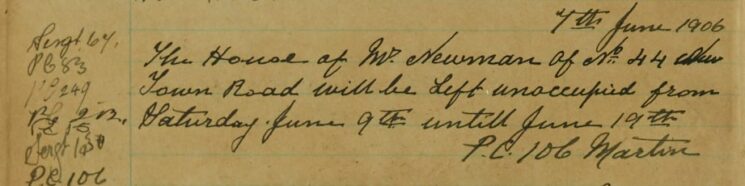 7th June 1906
Sergt 67.
PC 83
PC 249
Sergt 130
PC 106
The House of Mr. Newman of No. 44 New
Town Road will be Left unoccupied from
Saturday June 9th untill June 19th
P.C. 106 Martin